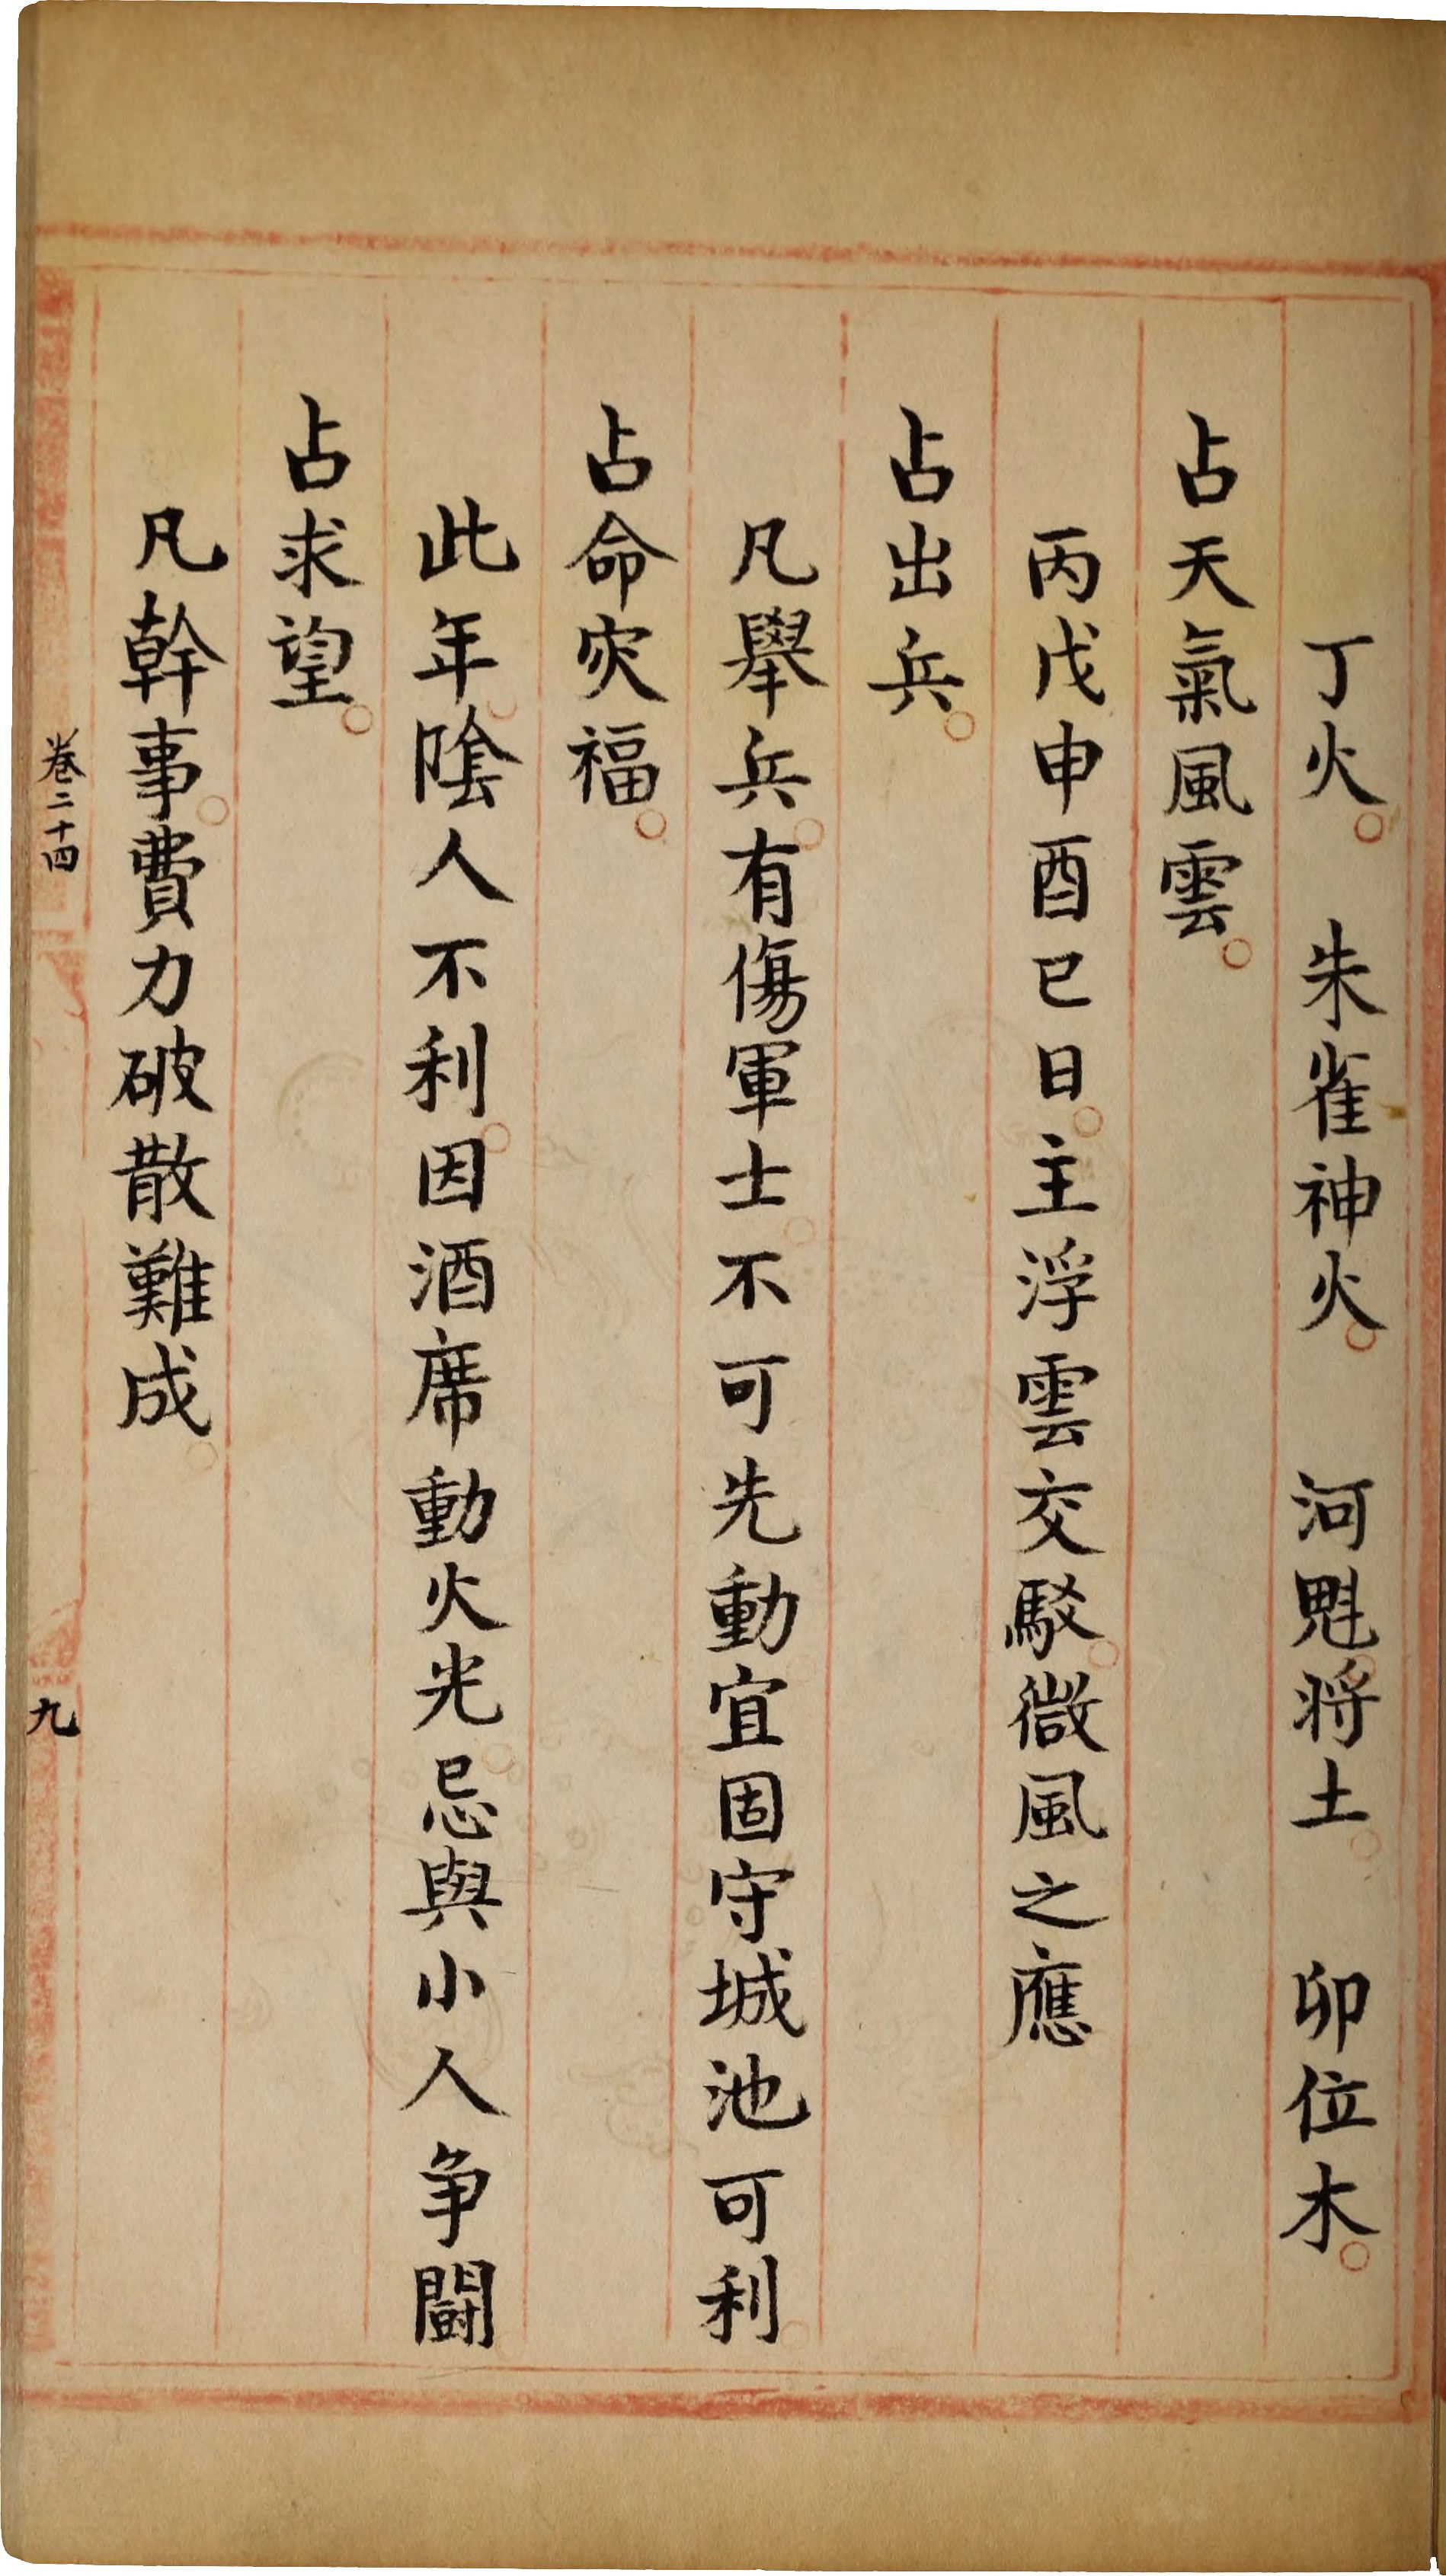 丁火。　朱雀神火。　河魁将土。　卯位木。
占天氣風雲。
丙戊申酉巳日。主浮雲交駁。微風之應
占出兵。
凡舉兵。有傷軍士。不可先動。宜固守城池可利。
占命灾福。
此年。陰人不利。因酒席動火光。忌與小人争鬪
占求望。
凡幹事。費力破散難成。
卷二十四
九